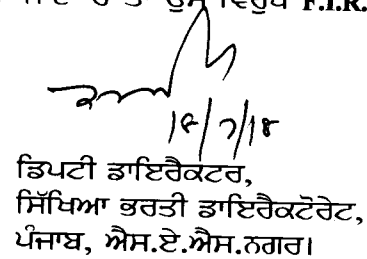 ਵਿਰੁੱਧ F.I.R.
18/7/18
ਡਿਪਟੀ ਡਾਇਰੈਕਟਰ,
ਸਿੱਖਿਆ ਭਰਤੀ ਡਾਇਰੈਕਟੋਰੇਟ,
ਪੰਜਾਬ, ਐਸ.ਏ.ਐਸ.ਨਗਰ।